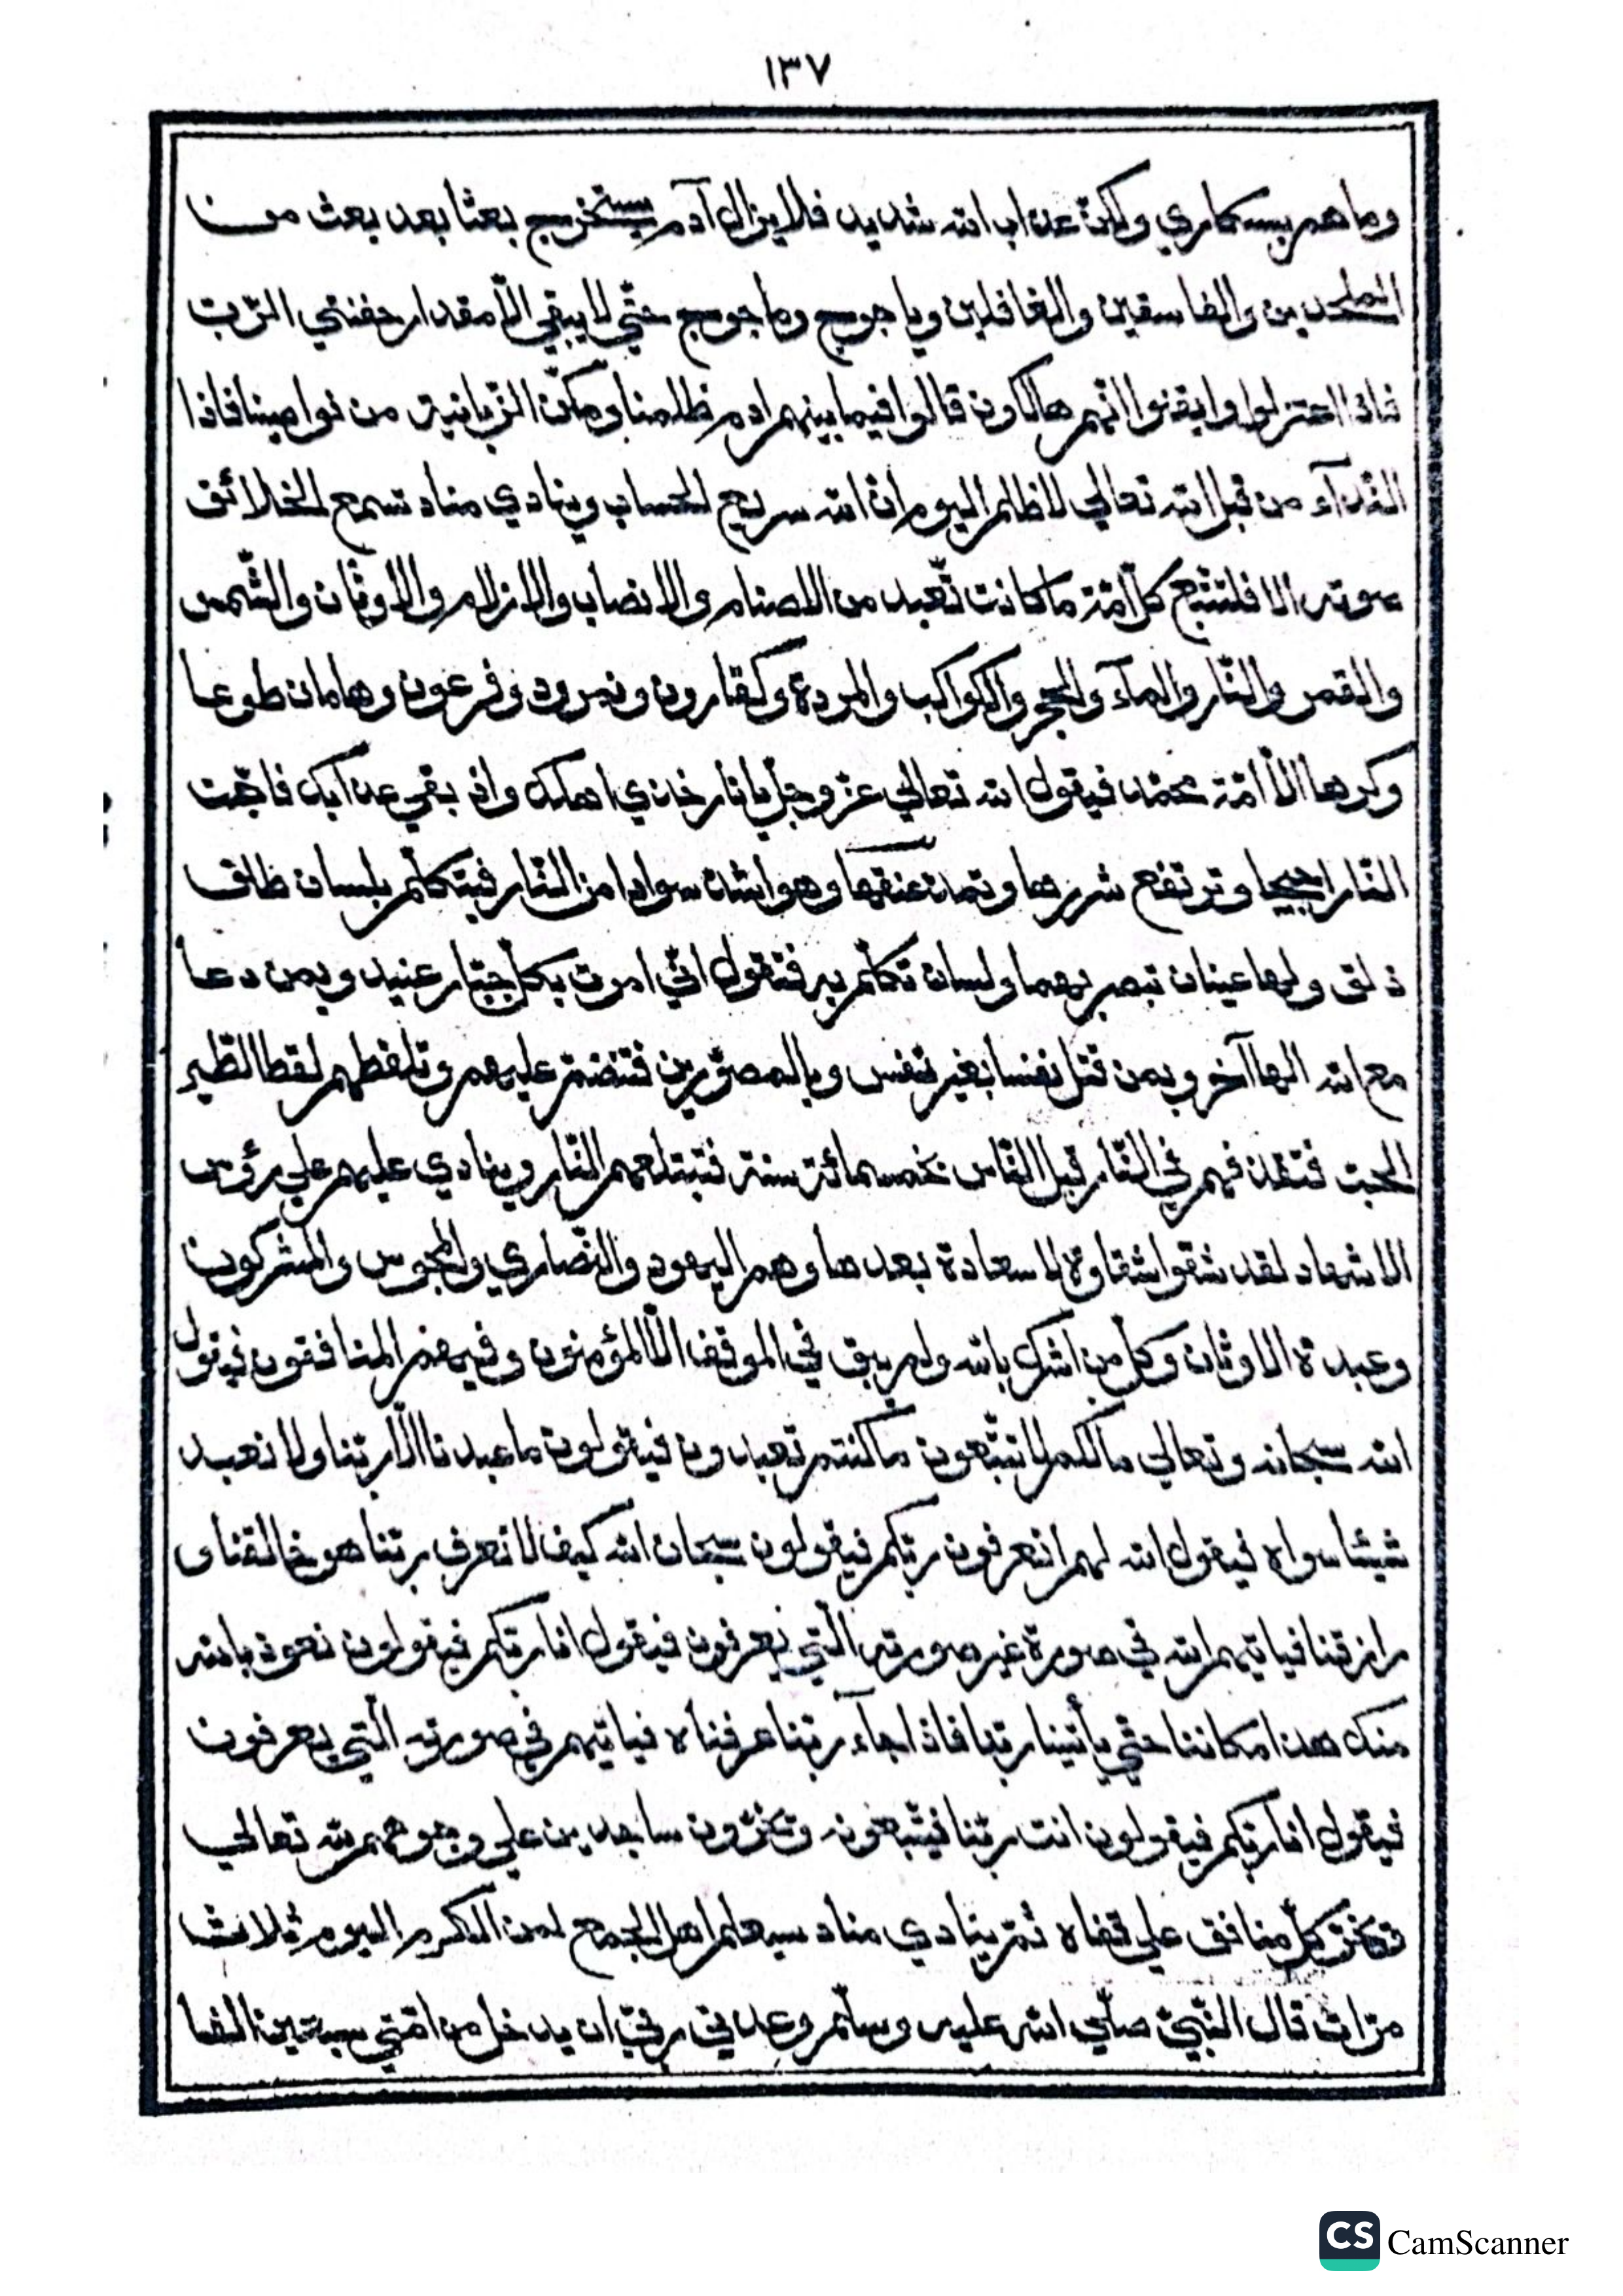 ١٣٧
وما هم بسكاري ولكنّ عذاب الله شديد فلا يزال آدم يستخرج بعثا بعد بعث من
الملحدين والفاسقين والغافلين وياجوج وماجوج حتّي لا يبقي الّا مقدار حفنتي الرّب
فاذا اعتزلوا وايقنوا انّهم هالكون قالوا فيما بينهم ادم ظلمنا ومكّن الزّبانية من نواصينا فاذا
النّدآء من قبل الله تعالي لا ظلم اليوم انّ الله سريع الحساب وينادي مناد تسمع الخلائق
صوته الا فلتتّبع كلّ امّة ما كانت تعبد من الاصنام والانصاب والازلام والاوثان والشّمس
والقمر والنّار والمآء والحجر والكواكب والمردة وكقارون ونمرود وفرعون وهامان طوعا
وكرها الّا امّة محمّد فيقول الله تعالي عزّ وجلّ يا نار خذي اهلك وان بقي عذابك فاجّت
النّار اجيجا وترتفع شررها وتمدّ عنقها وهو اشدّ سوادا من النّار فيتكلّم بلسان طلق
ذلق ولها عينان تبصر بهما ولسان تكلّم به فتقول انّي امرت بكلّ جبّار عنيد وبمن دعا
مع الله الها آخر وبمن قتل نفسا بغير نفس وبالمصوّرين فتنضمّ عليهم وتلقطهم لقط الطّير
الحبّ فتقذفهم في النّار قبل النّاس بخمسمائة سنة فتبتلعهم النّار وينادي عليهم علي رؤس
الاشهاد لقد شقوا شقاوة لا سعادة بعدها وهم اليهود والنّصاري والمجوس والمشركون
وعبدة الاوثان وكلّ من اشرك بالله ولم يبق في الموقف الّا المؤمنون وفيهم المنافقون فيقول
الله سبحانه وتعالي ما لكم لا تتّبعون ما كنتم تعبدون فيقولون ما عبدنا الّا ربّنا ولا نعبد
شيئا سواه فيقول الله لهم اتعرفون ربّكم فيقولون سبحان الله كيف لا نعرف ربّنا هو خالقنا و
رازقنا فياتيهم الله في صورة غير صورته الّتي يعرفون فيقول انا ربّكم فيقولون نعوذ بالله
منك هذا مكاننا حتّي يأتينا ربّنا فاذا جآء ربّنا عرفناه فياتيهم في صورته الّتي يعرفون
فيقول انا ربّكم فيقولون انت ربّنا فيتّبعونه وتخرّون ساجدين علي وجوههم لله تعالي
وتخرّ كلّ منافق علي قفاه ثمّ ينادي مناد سيعلم اهل الجمع لمن الكرم اليوم ثلاث
مرّات قال النّبيّ صلّي الله عليه وسلّم وعدني ربّي ان يدخل من امّتي سبعين الفا
CamScanner